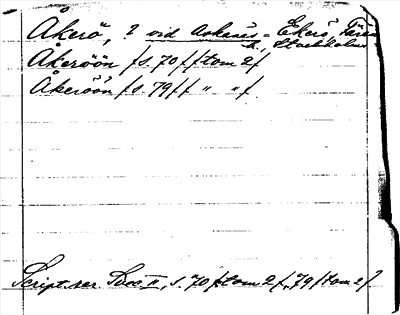 Åkerö, ? vid Asknäs = Ekerö,
n., Stockholms
Åkeröön /s. 70 / /tom 2/
Åkeröön /s. 79 / / " " /
Script. rer. Svec II, s. 70 /tom 2/, 79 /tom 2/